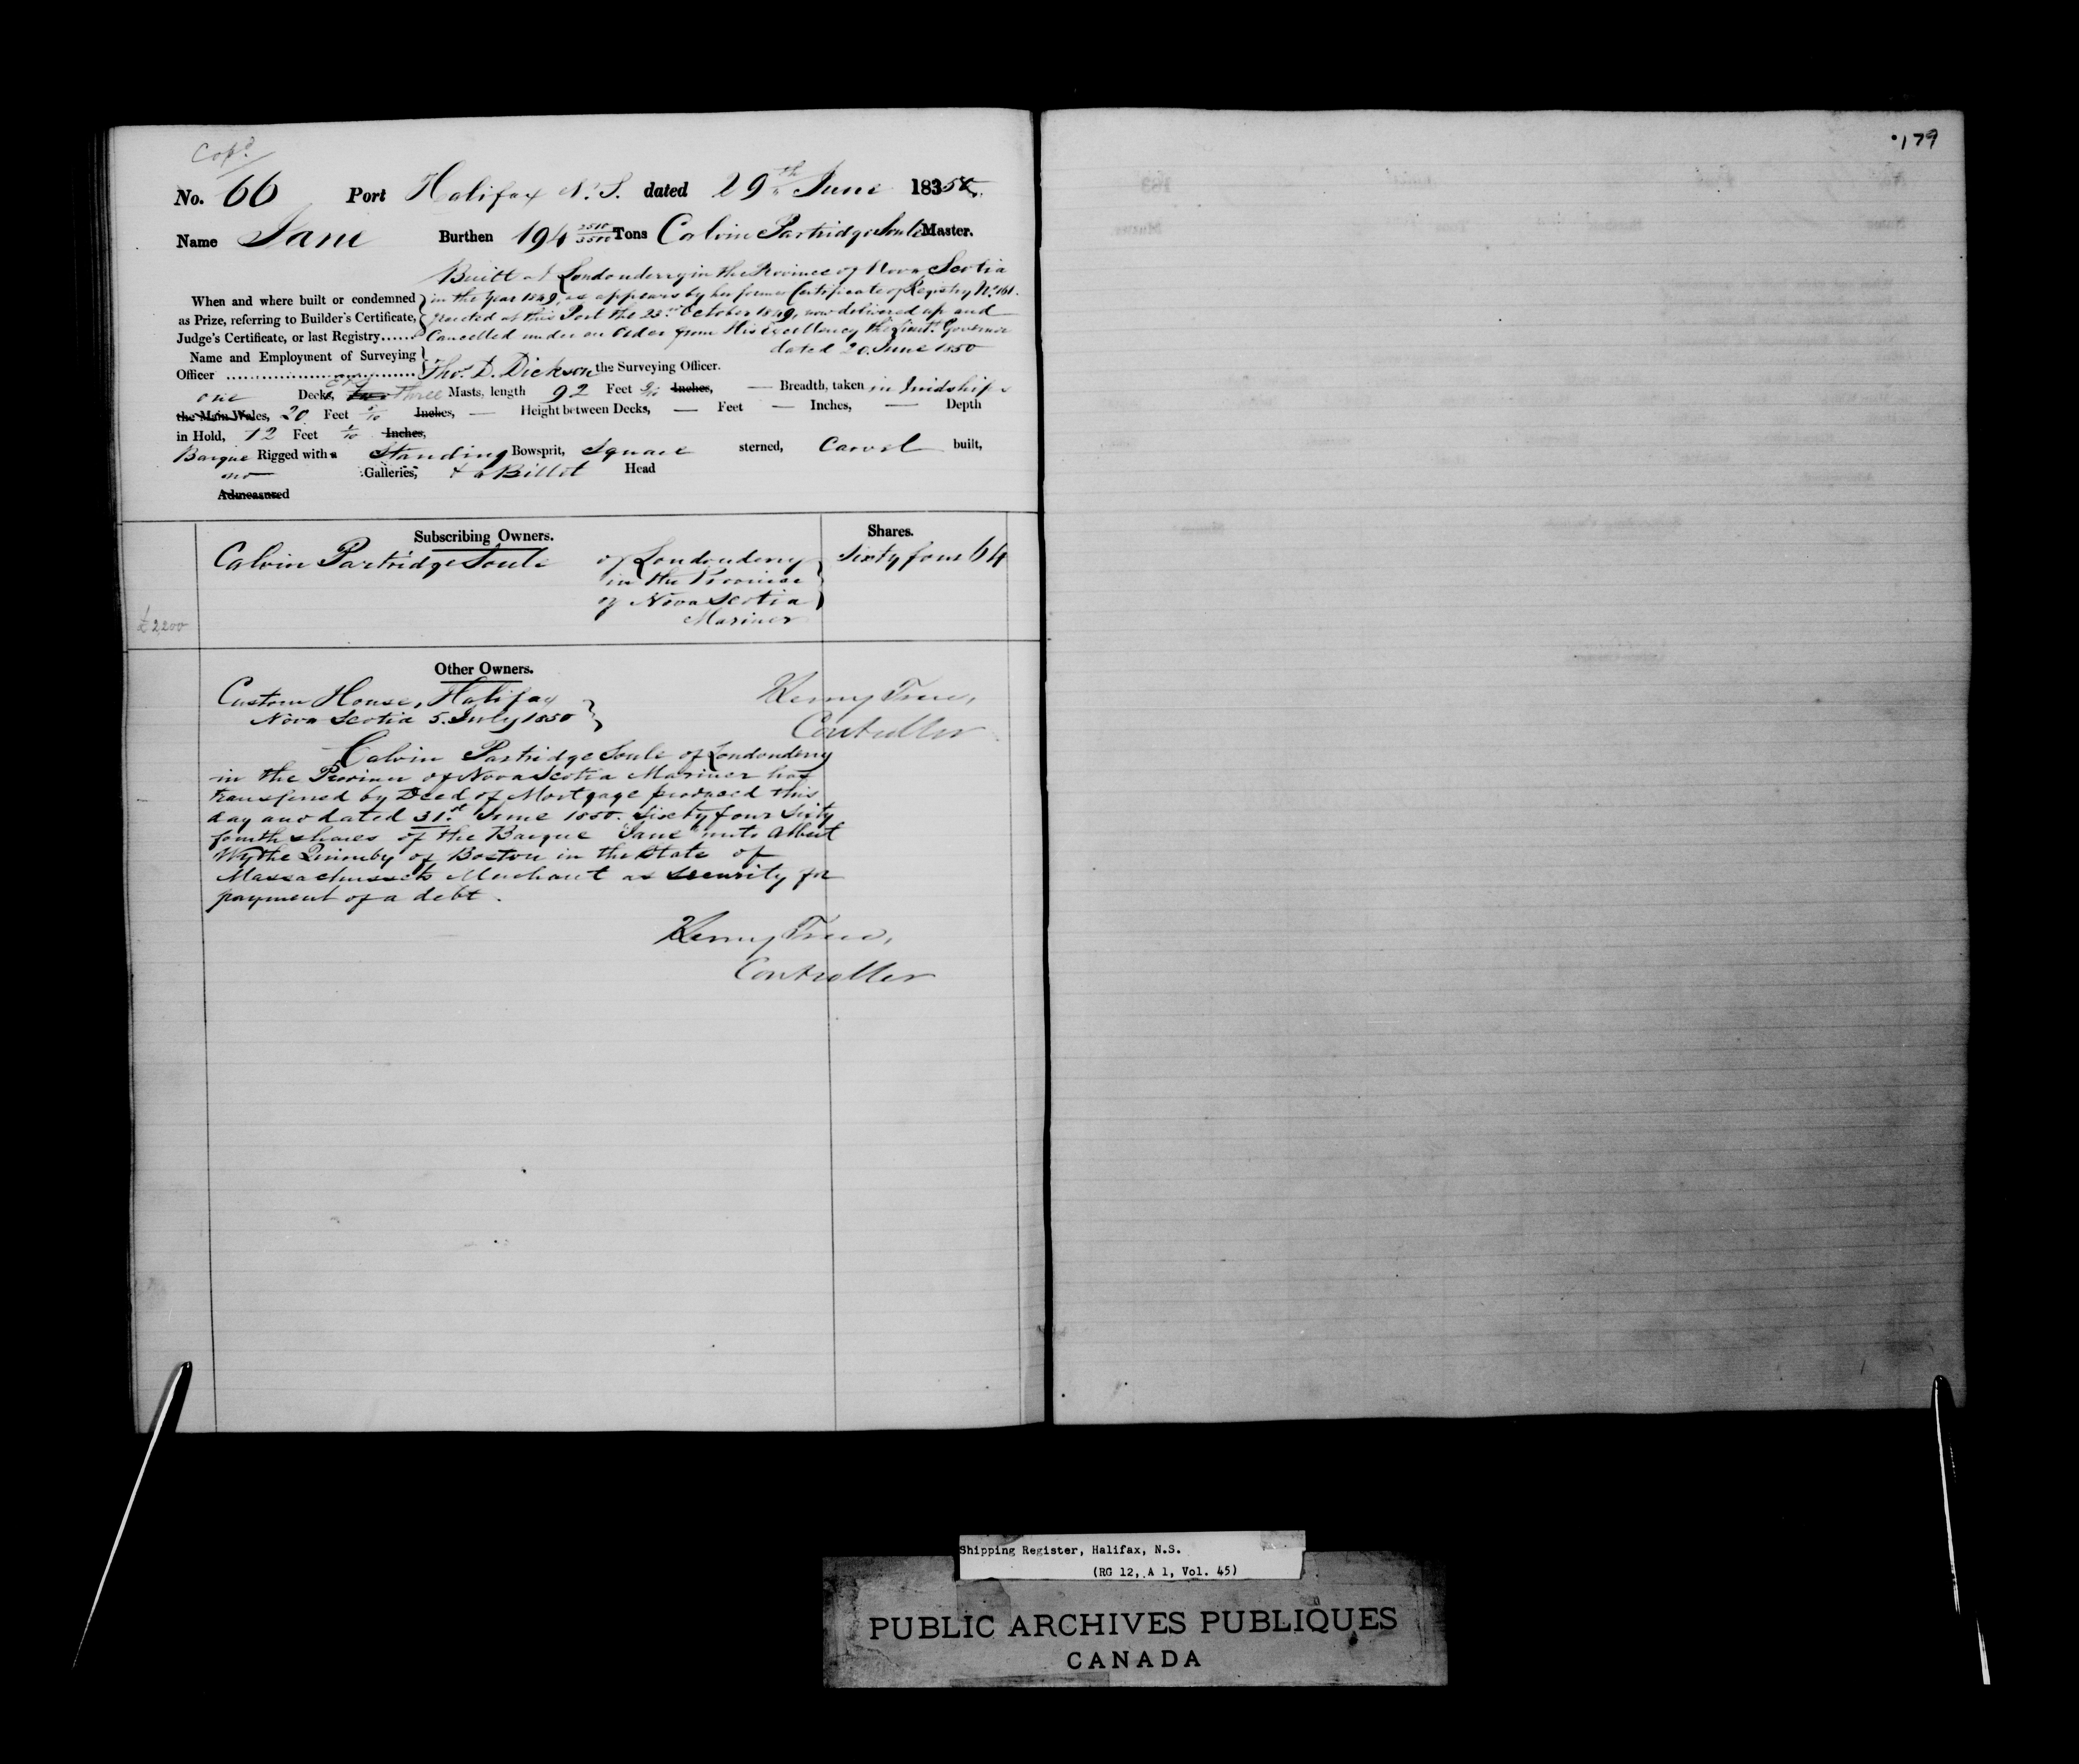 Copd
No. 66 Port Halifax N.S. dated 29th June 18350.
Name Jane Burthen 194 2510/3500 Tons Calvin Partridge Soule Master.
Built at Londonderry in the Province of Nova Scotia
When and where built or condemned in the Year 1849, as appears by her former Certificate of Registry No. 161.
as Prize, referring to Builder's Certificate, granted at this Port the 23rd October 1849, now delivered up and
Judge's Certificate, or last Registry...... Cancelled under an Order from His Excellency the Lieut. Governor
dated 20. June 1850
Name and Employment of Surveying
Officer ........................................ Thos. D. Dickson the Surveying Officer.
one Decks, two three Masts, length 92 Feet Inches, — Breadth, taken in Midships
the Main Wales, 20 Feet Inches, — Height between Decks, — Feet — Inches, — Depth
in Hold, 12 Feet Inches,
Barque Rigged with a Standing Bowsprit, Square sterned, Carvel built,
no Galleries, & a Billet Head
Admeasured
Subscribing Owners. Shares.
Calvin Partridge Soule of Londonderry Sixty four 64
in the Province
of Nova Scotia
Mariner
£2200
Other Owners.
Custom House, Halifax
Nova Scotia 5. July 1850
Controller
Calvin Partridge Soule of Londonderry
in the Province of Nova Scotia Mariner has
transferred by Deed of Mortgage produced this
day and dated 31st June 1850. Sixty four Sixty
fourth shares of the Barque "Jane" unto Albert
Wythe Quimby of Boston in the State of
Massachussets Merchant as security for
payment of a debt.
Controller
179
Shipping Register, Halifax, N.S.
(RG 12, A 1, Vol. 45)
PUBLIC ARCHIVES PUBLIQUES
CANADA